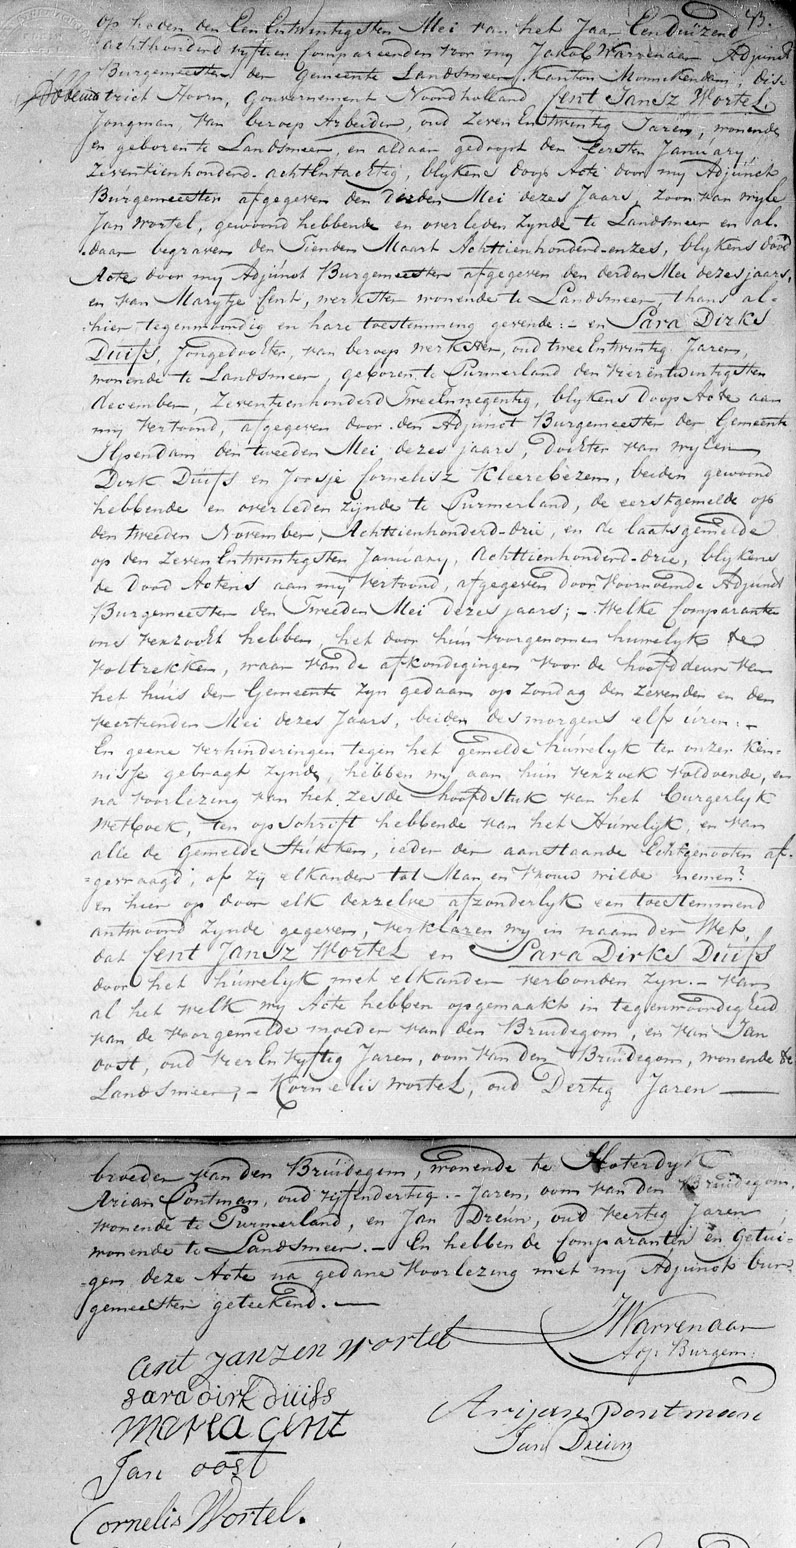 op heden den Een Entwintigsten Mei van het Jaar Een duizend
achthonderd vyftien Compareerden voor my Jakob Warrenaar Adjunct
Burgemeester der Gemeente Landsmeer, Kanton Monnikendam, dis-
trict Hoorn, Gouvernement Noordholland Cent Jansz Wortel,
Jongman, van beroep Arbeider, oud Zeven Entwintig Jaren, wonende
en geboren te Landsmeer, en aldaar gedoopt den Eersten January
Zeventienhonderd. achtEntachtig, blykens doop Acte door my Adjunct
Burgemeester afgegeven den derden Mei dezes Jaars, Zoon van wyle
Jan Wortel, gewoond hebbende en overleden Zynde te Landsmeer en al-
daar begraven den Tienden Maart Achttienhonderd-enzes, blykens dood
Acte door my Adjunct Burgemeester afgegeven den derden Mei dezes jaars,
en van Marytje Cent, werkster wonende te Landsmeer, thans al-
hier tegenwoordig en hare toestemming gevende:- en Sara Dirks
Duifs, Jongedochter, van beroep werkster, oud twee Entwintig Jaren,
wonende te Landsmeer geboren te Purmerland den vierentwintigsten
december, Zeventienhonderd TweeEnnegentig, blykens doop Acte aan
my vertoond, afgegeven door den Adjunct Burgemeester der Gemeente
Ilpendam den tweeden Mei dezes jaars, Dochter van wylen
Dirk Duifs en Joosje Cornelisz Kleerebezem, beiden gewoond
hebbende en overleden zijnde te Purmerland, de eerstgemelde op
den tweeden November, Achttienhonderd-drie, en de laatsgemelde
op den ZevenEntwintigsten January, Achttienhonderd-drie, blykens
de Dood Actens aan my vertoond, afgegeven door voornoemde Adjunct
Burgemeester den Tweeden Mei dezes jaars; - Welke Comparanten
ons verzocht hebben, het door hun voorgenomen huwelyk te
voltrekken, waar van de afkondigingen voor de hoofddeur van
het huis der Gemeente zyn gedaan op Zondag den Zevenden en den
veertienden Mei dezes Jaars, beiden des morgens elf uren:-
En geene verhinderingen tegen het gemelde huwelyk ter onzer ken-
nisse gebragt zynde, hebben wy aan hun verzoek voldoende, en
na voorlezing van het zesde Hoofdstuk van het burgerlyk
Wetboek, ten opschrift hebbende van het Huwelyk, en van
alle de gemelde Stukken, ieder der aanstaande Echtgenooten af-
gevraagd; of zij elkander tot Man en vrouw wilde nemen?
en hier op door elk derzelve afzonderlyk een toestemmend
antwoord zynde gegeven, verklaren wy in naam der Wet,
dat Cent Jansz Wortel en Sara Dirks Duifs
door het huwelyk met elkander verbonden zyn.- van
al het welk wy Acte hebben opgemaakt in tegenwoordigheid
van de voorgemelde moeder van den Bruidegom, en van Jan
oost, oud vier En vyftig Jaren, oom van den Bruidegom, wonende te
Landsmeer; - Kornelis wortel, oud Dertig Jaren
broeder van den Bruidegom, wonende te Sloterdyk
Arian Pontman, oud vijfendertig.- Jaren, oom van den Bruidegom,
wonende te Purmerland, en Jan Dreun, oud veertig Jaren
wonende te Landsmeer.- En hebben de Comparanten en Getui-
gen deze Acte na gedane voorlezing met my Adjunct bur-
gemeester geteekend.
JWarrenaar
Adj Burgem:
cent janzen wortel
sara dirk duifs
Arijan pontman
marea cent
Jan Dreun
Jan oost
Cornelis Wortel.